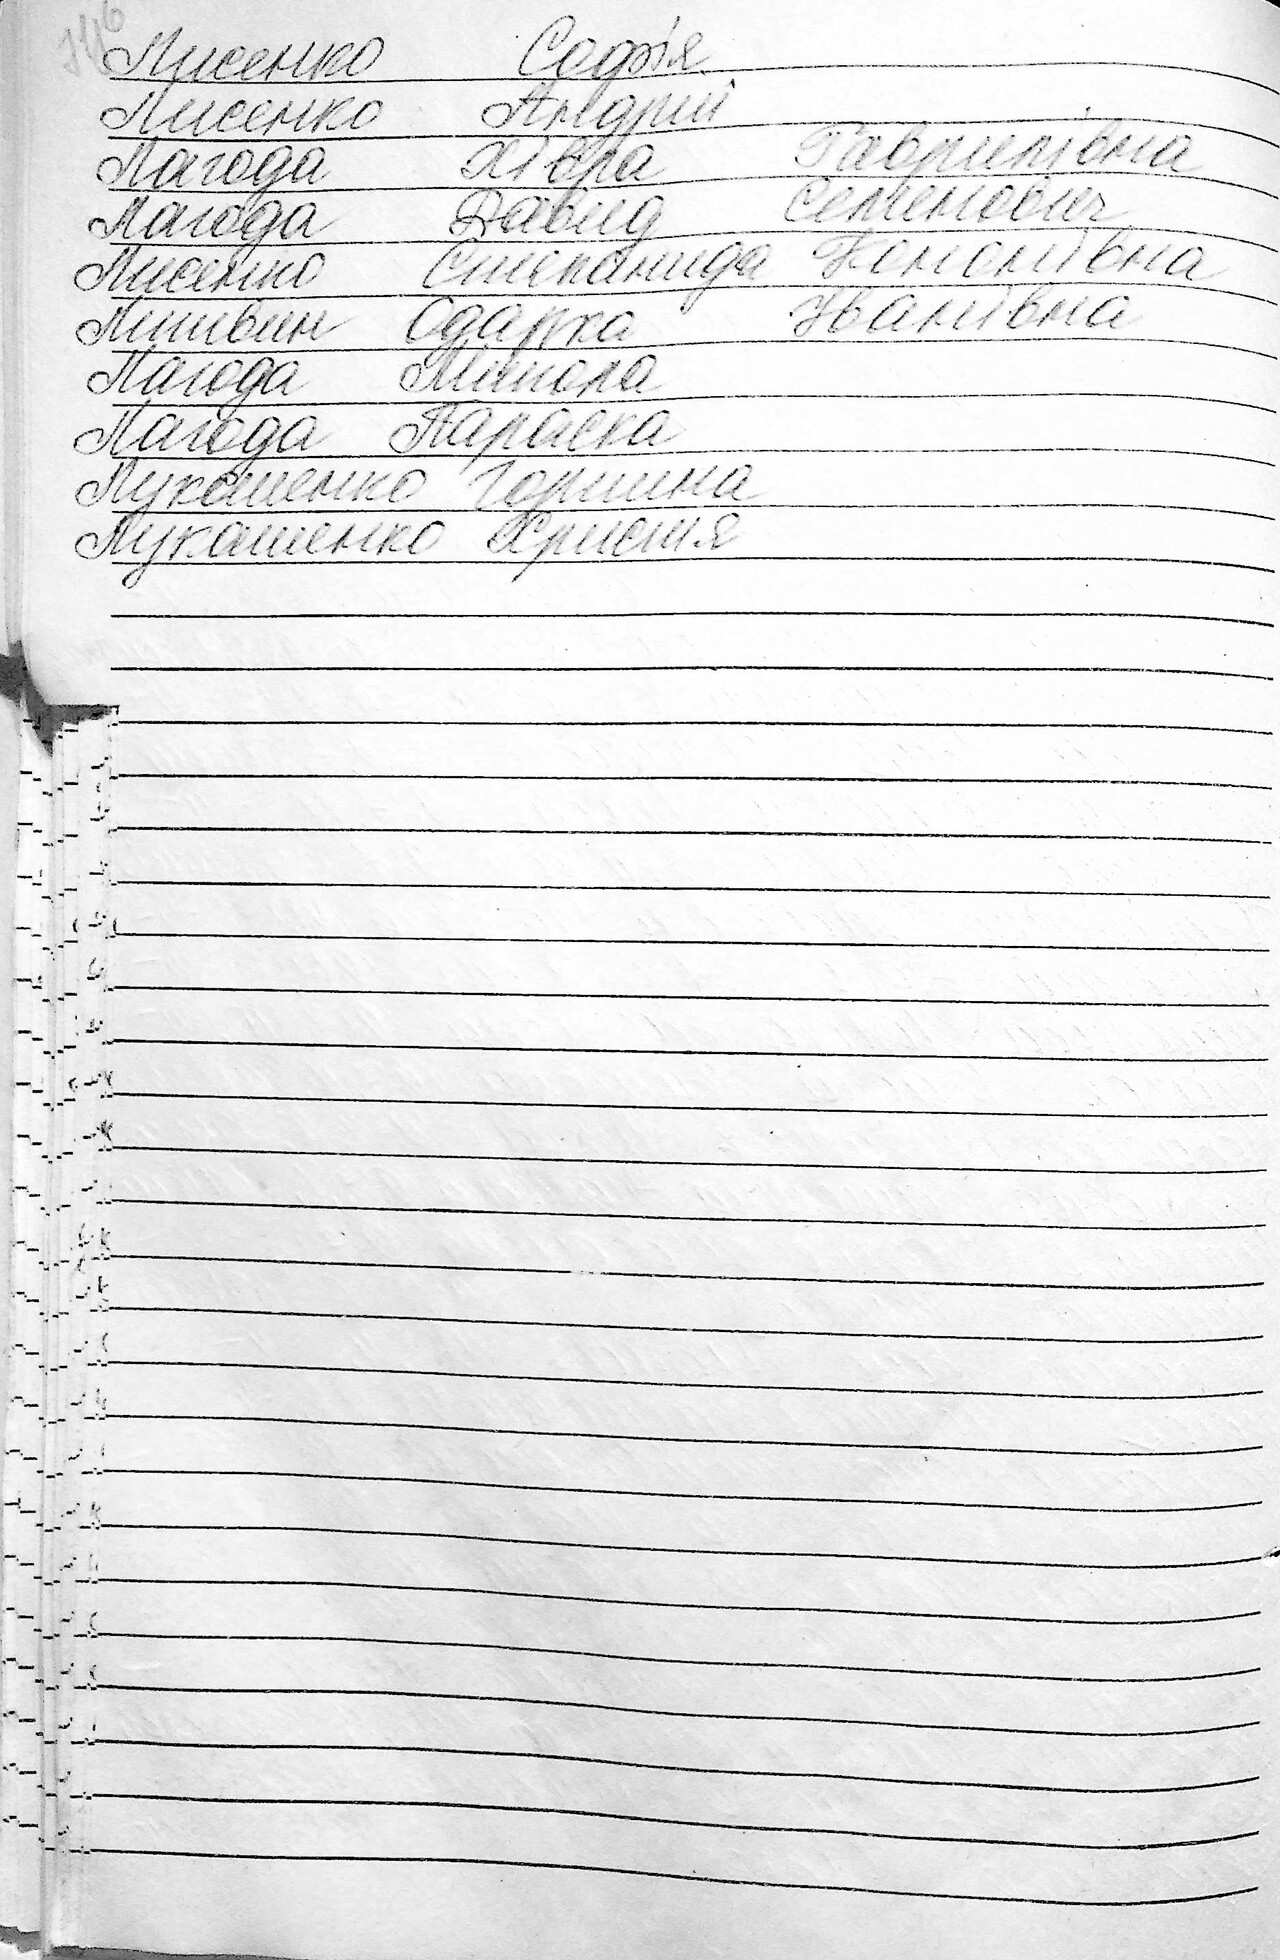 Лисенко Софія
Лисенко Андрій
Лагода Хівра Гаврилівна
Лагода Давид Семенович
Лисенко Степанида Кононівна
Литвин Одарка Іванівна
Лагода Микола
Лагода Параска
Лукашенко Горпина
Лукашенко Христя